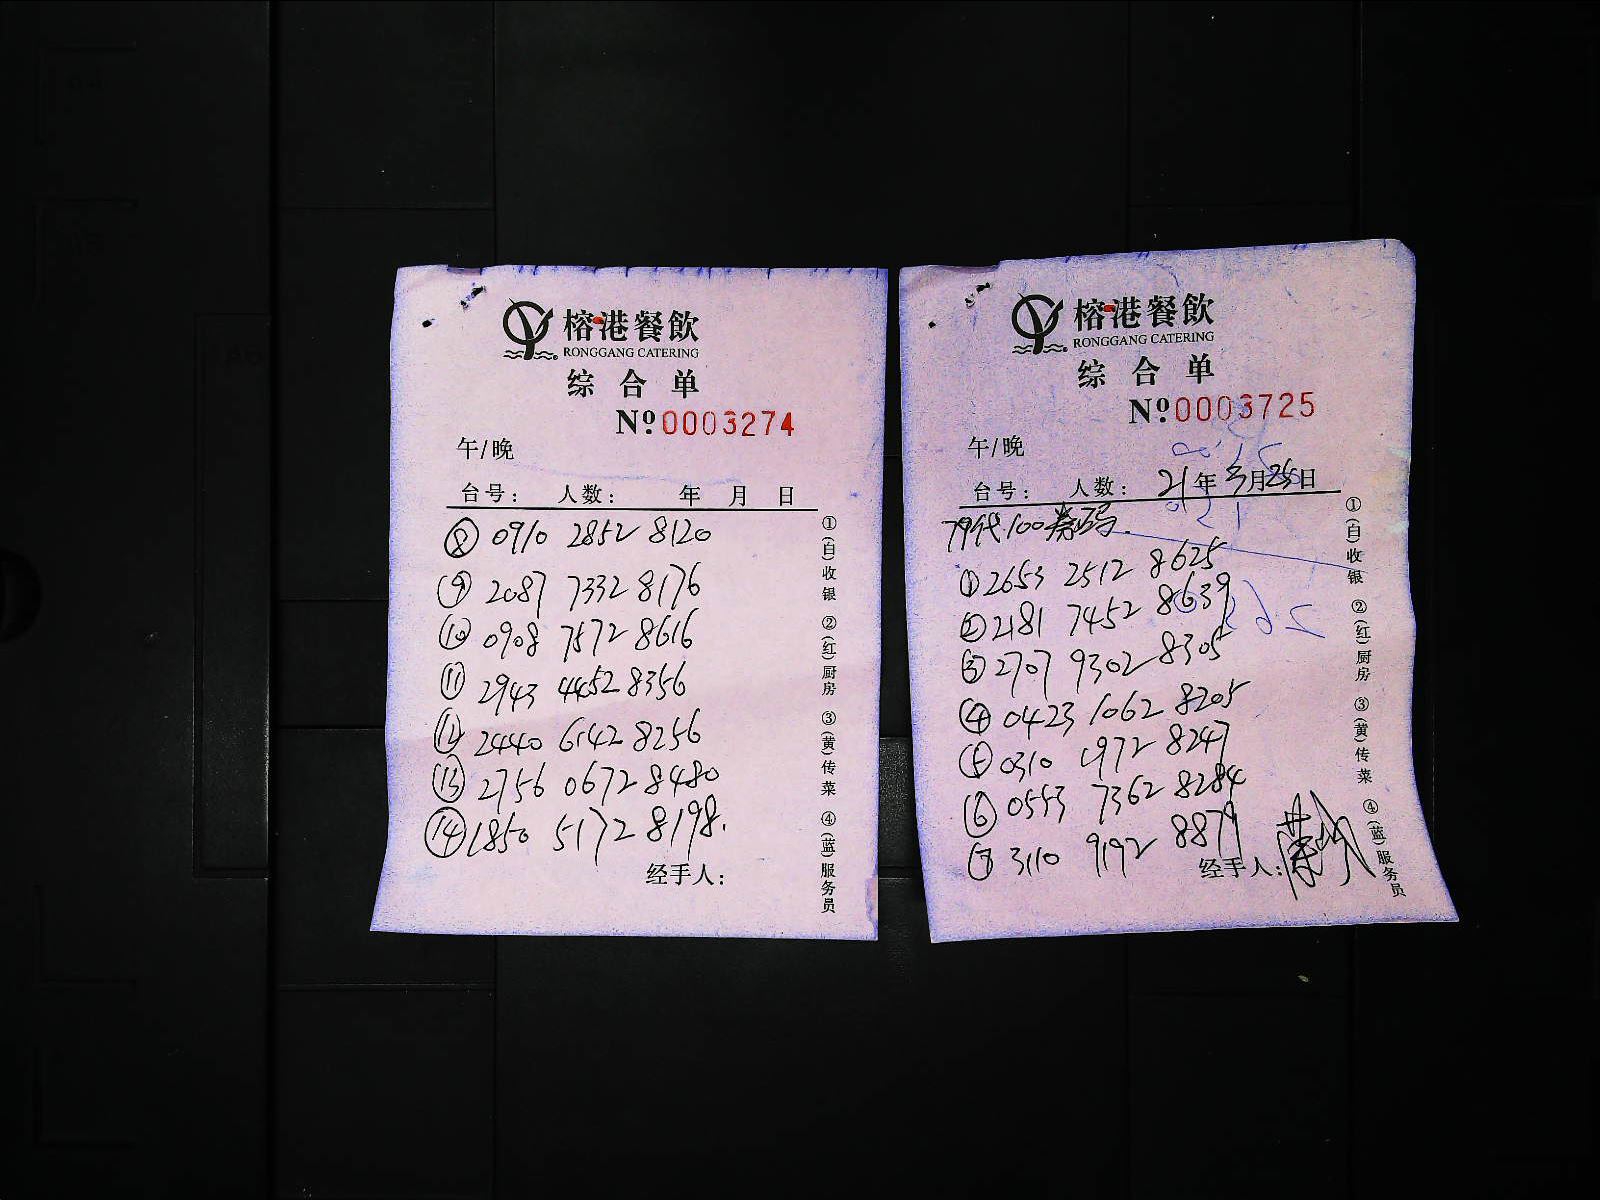 榕港餐飲
RONGGANG CATERING
综合单
Nº 0003274
午/晚
台号： 人数： 年 月 日
⑧ 0910 2852 8120
⑨ 2087 7332 8176
⑩ 0908 7572 8616
⑪ 2943 4452 8356
⑫ 2440 6142 8256
⑬ 2756 0672 8480
⑭ 1850 5172 8198.
经手人：
①(白)收银 ②(红)厨房 ③(黄)传菜 ④(蓝)服务员
榕港餐飲
RONGGANG CATERING
综合单
Nº 0003725
午/晚
台号： 人数： 21年3月25日
79代100券码.
① 2653 2512 8625
② 2181 7452 8639
③ 2707 9302 8305
④ 0423 1062 8205
⑤ 0310 1972 8247
⑥ 0553 7362 8284
⑦ 3110 9192 8879
经手人：
①(白)收银 ②(红)厨房 ③(黄)传菜 ④(蓝)服务员